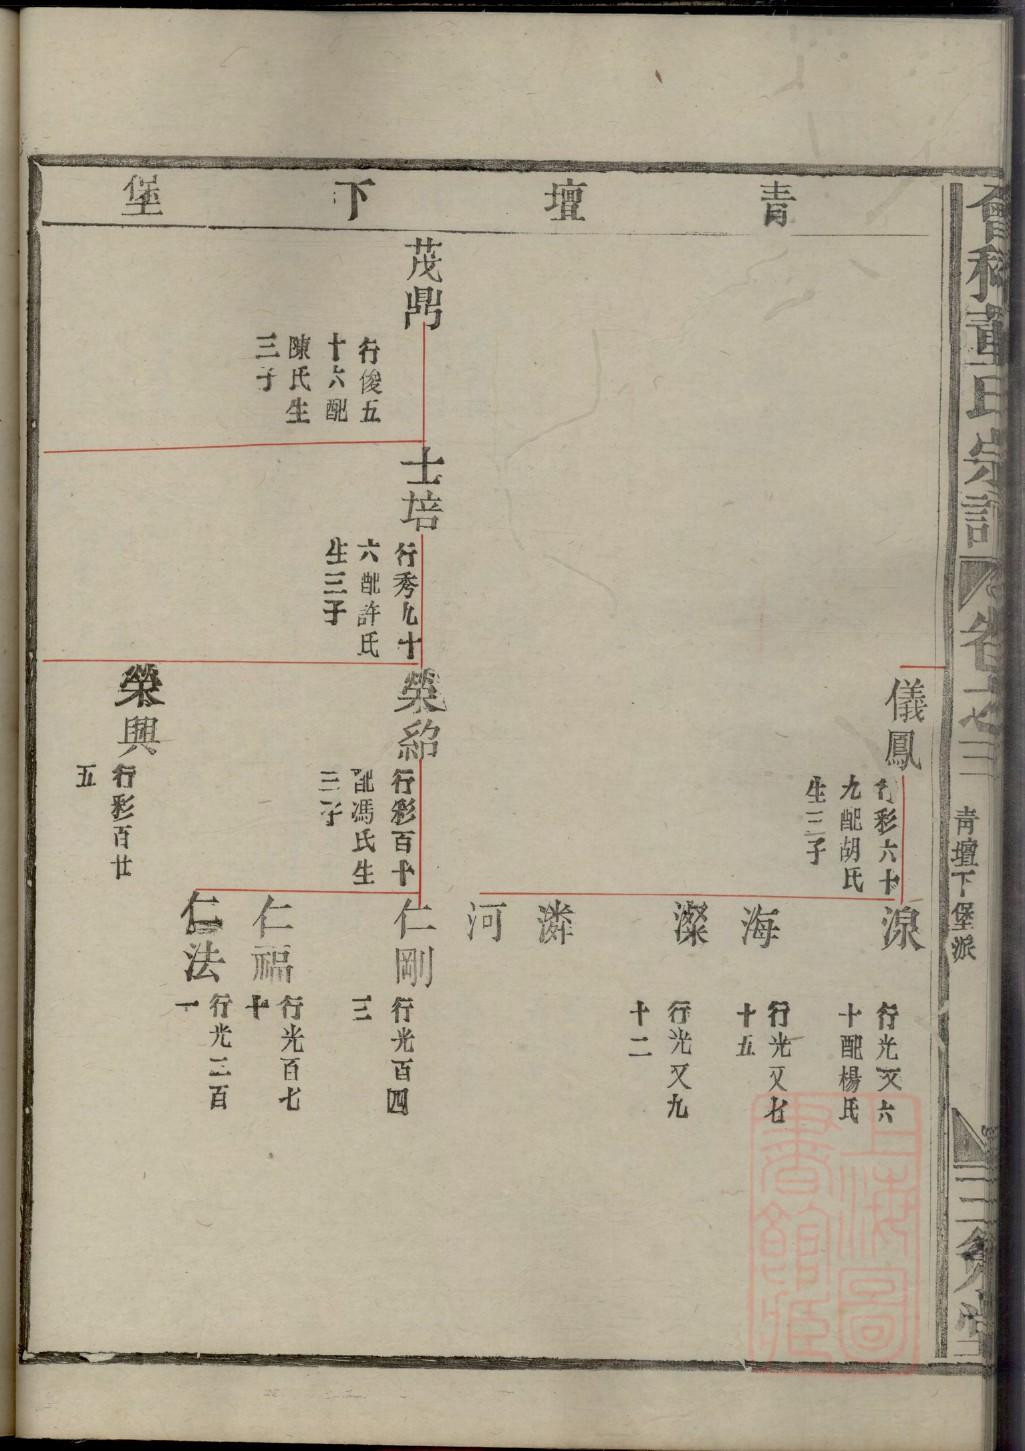 會稽董氏宗譜
卷之三
青壇下堡派
三策堂
青壇下堡
儀鳳
行彩六十
九配胡氏
生三子
湶
行光又六
十配楊氏
海
行光又七
十五
澯
行光又九
十二
潾
河
茂鼎
行俊五
十六配
陳氏生
三子
士培
行秀九十
六配許氏
生三子
榮紹
行彩百十
配馮氏生
三子
仁剛
行光百四
三
仁福
行光百七
十
仁法
行光二百
一
榮興
行彩百廿
五
上海圖
書館藏